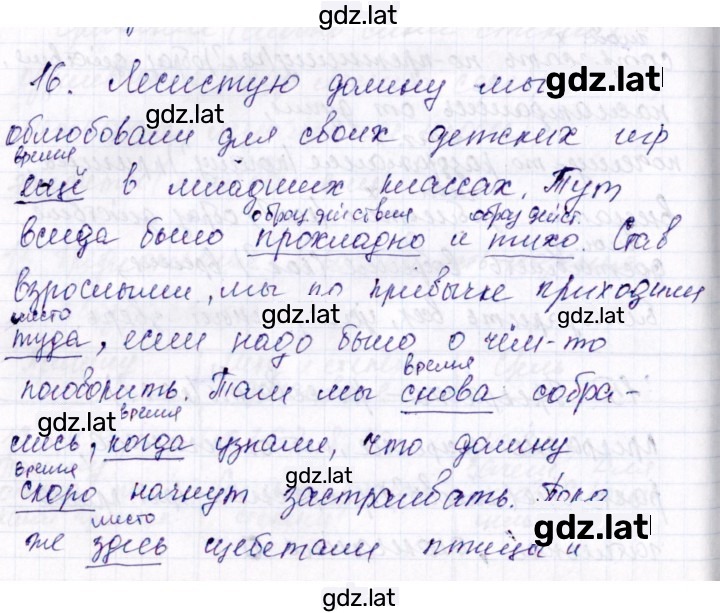 gdz.lat
16. Лесистую долину мы
gdz.lat
gdz.lat
облюбовали для своих детских игр
время
ещё в младших классах. Тут
образ действия образ дейст.
всегда было прохладно и тихо. Став
gdz.lat
взрослыми, мы по привычке приходили
gdz.lat
gdz.lat
место
туда, если надо было о чём-то
время
поговорить. Там мы снова собра-
gdz.lat
время
лись, когда узнали, что долину
время
gdz.lat
скоро начнут застраивать. Пока
место
gdz.lat
же здесь щебетали птицы и
gdz.lat
gdz.lat